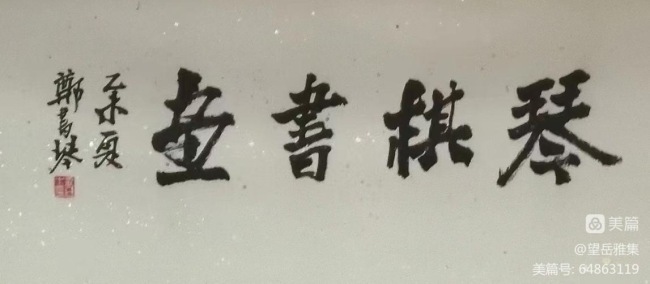 琴棋書畫
乙未夏
鄭書琴
美篇
@望岳雅集
美篇号: 64863119